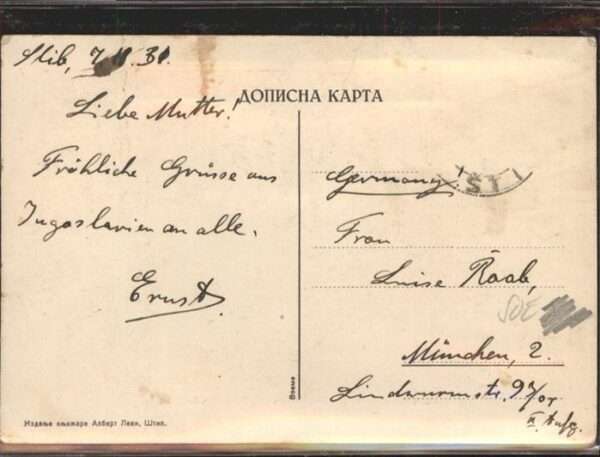 Stib, 7.11.31.
Liebe Mutter!
ДОПИСНА КАРТА
Fröhliche Grüsse aus
Jugoslavien an alle.
Ernst
Germany!
ŠTI
Frau
Luise Raab,
SOE
München, 2.
Lindwurmstr.
II. Aufg.
Време
Издање књижаре Алберт Леви, Штип.